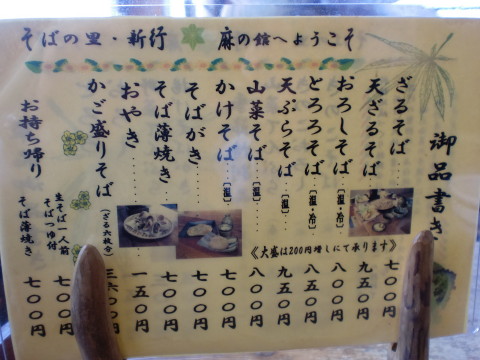 そばの里・新行 麻の館へようこそ
御品書き
ざるそば……七〇〇円
天ざるそば……九五〇円
おろしそば…[温・冷]八〇〇円
とろろそば…[温・冷]八五〇円
天ぷらそば…[温]九五〇円
山菜そば…[温]八〇〇円
かけそば…[温]七〇〇円
そばがき……七〇〇円
そば薄焼き……七〇〇円
おやき……一五〇円
かご盛りそば(ざる六枚分)三六〇〇円
《大盛は200円増しにて承ります》
お持ち帰り
生そば一人前
そばつゆ付 七〇〇円
そば薄焼き 七〇〇円